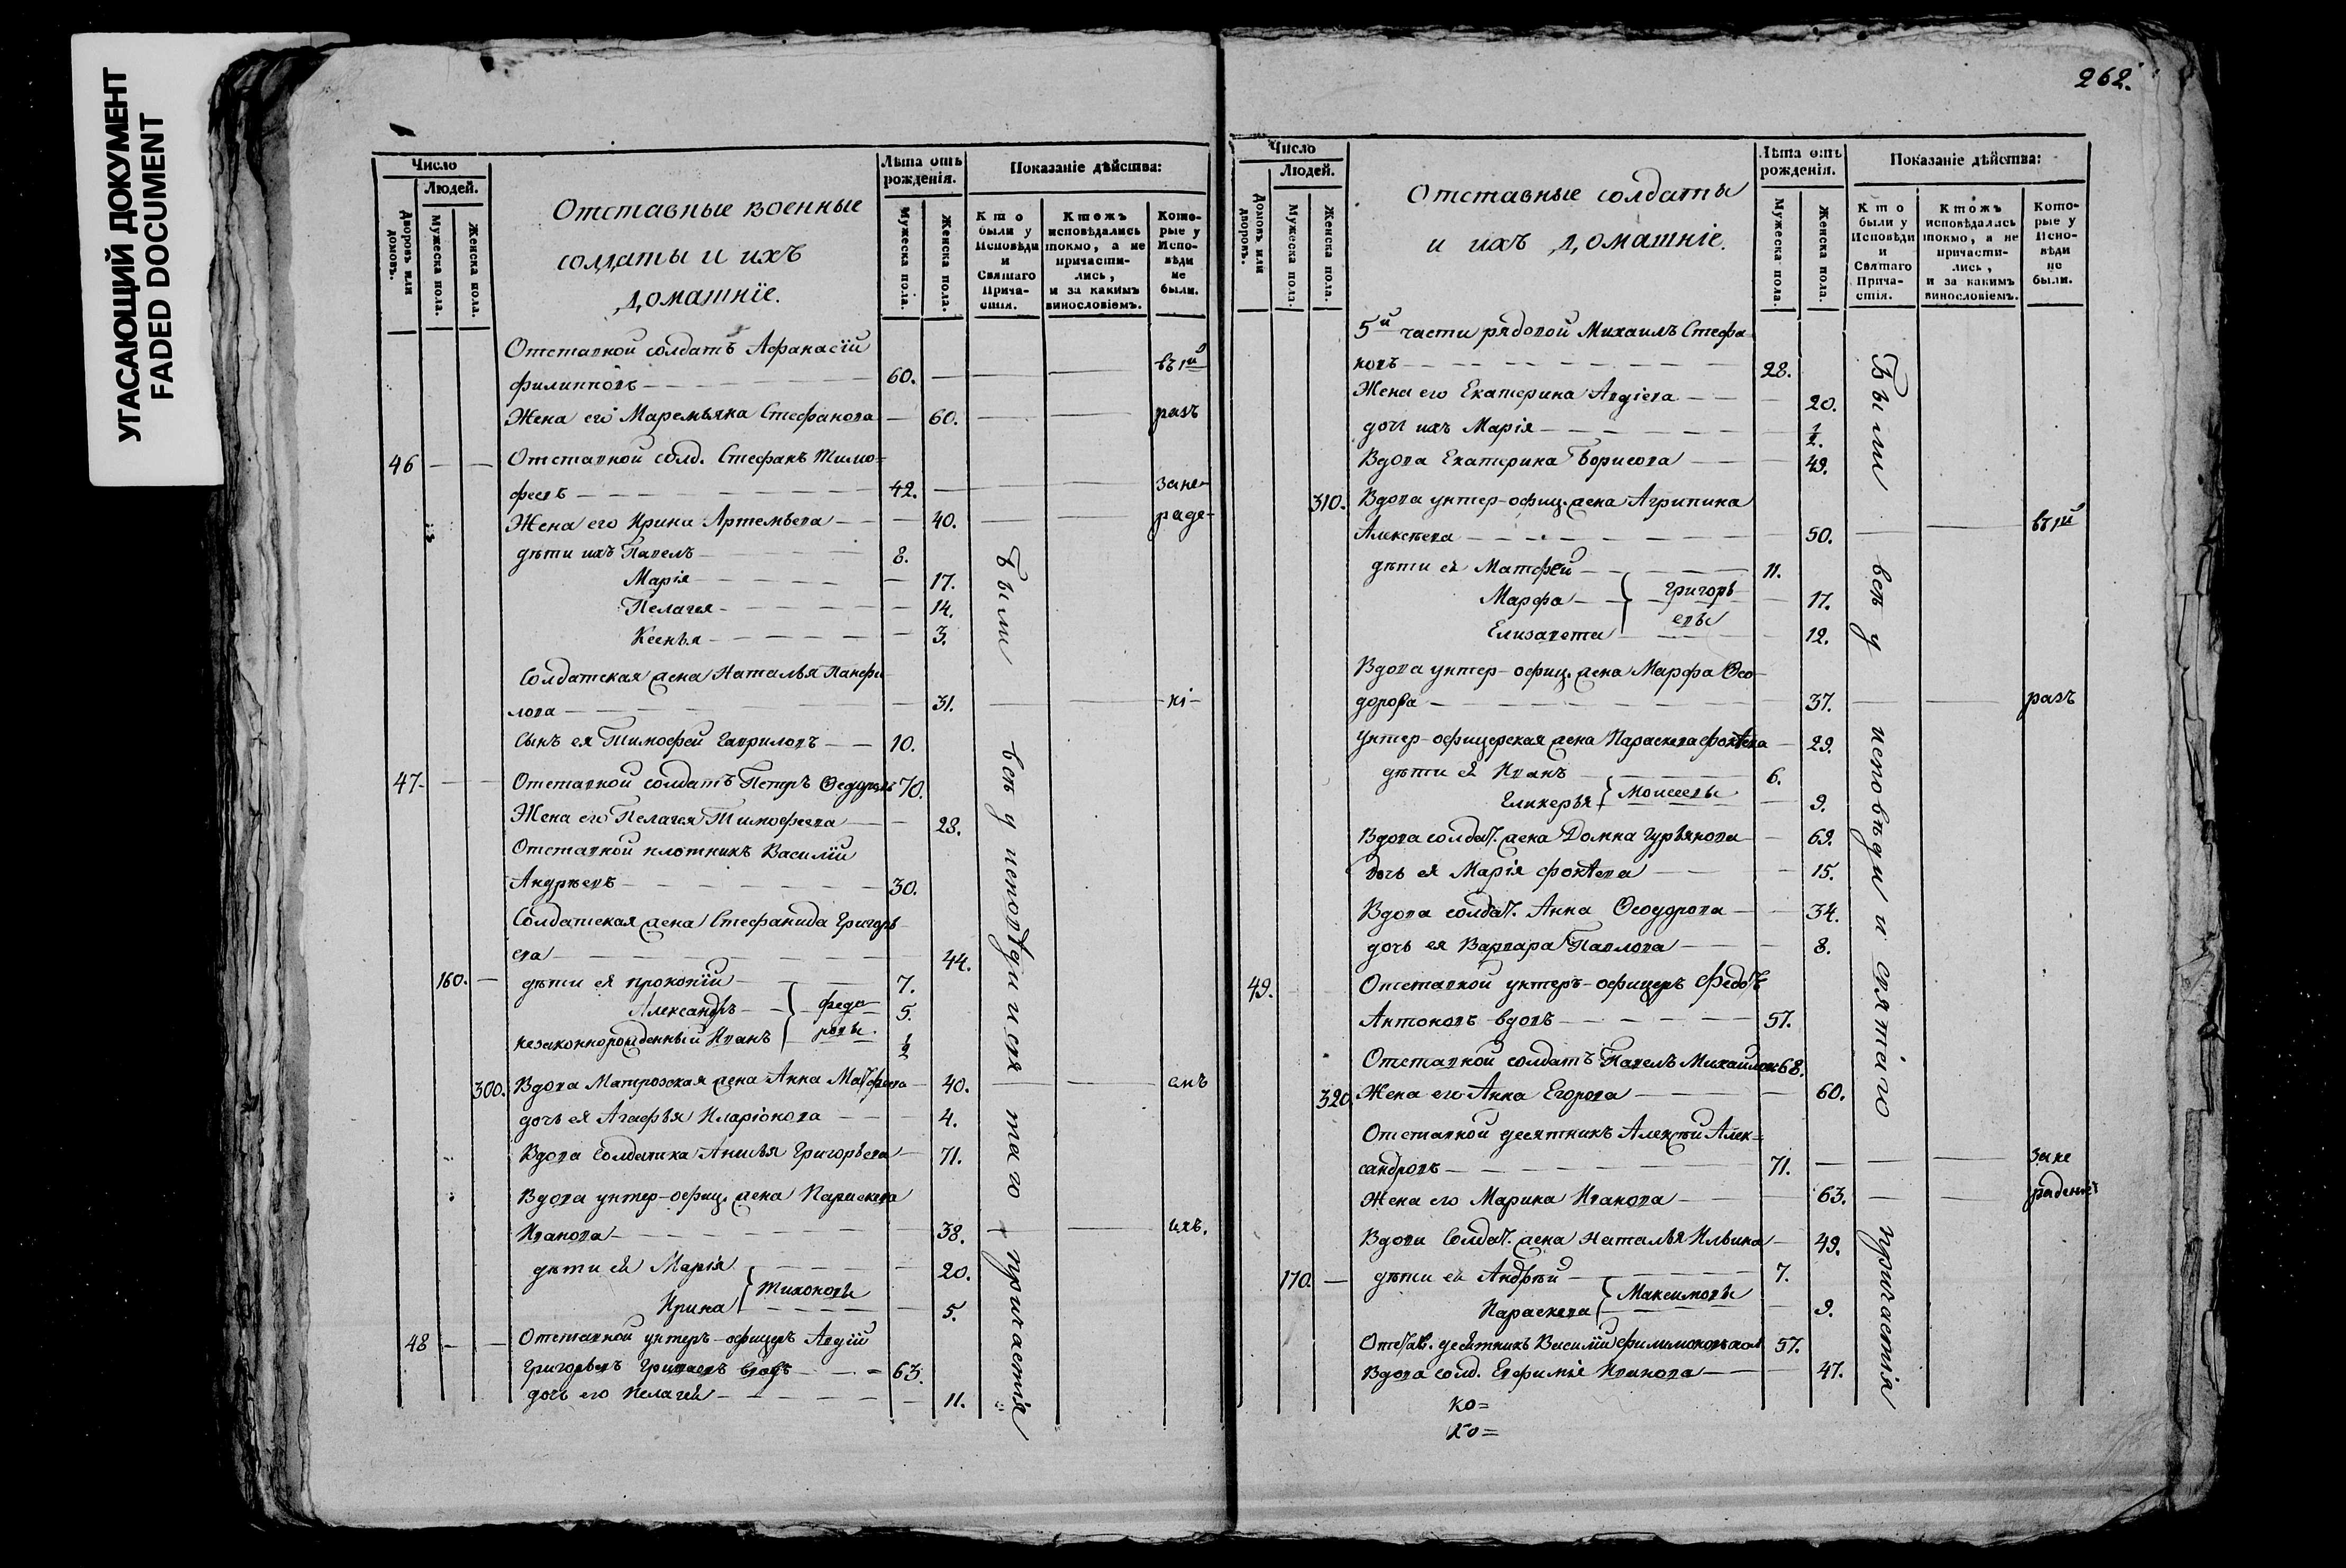 УГАСАЮЩИЙ ДОКУМЕНТ
FADED DOCUMENT
Число
Людей.
Дворовъ или домовъ.
Мужеска пола.
Женска пола.
Отставные военные
солдаты и ихъ
домашнїе.
Лѣта отъ рожденія.
Мужеска пола.
Женска пола.
Показаніе дѣйства:
Кто были у Исповѣди и Святаго Прича-стія.
Ктожъ исповѣдались токмо, а не причасти-лись, и за какимъ винословіемъ.
Кото-рые у Испо-вѣди не были.
Отставной солдатъ Афанасїй
Филипповъ 60. въ 1й
Жена его Маремьяна Стефанова 60. разъ
46 Отставной солд. Стефанъ Тимо=
феевъ 42. зане-
Жена его Ирина Артемьева 40. раде-
дѣти ихъ Павелъ 8.
Марія 17.
Пелагея 14.
Ксенья 3.
Солдатская жена Наталья Панфи
лова 31. -ні-
Сынъ ея Тимофей Гавриловъ 10.
47 Отставной солдатъ Петръ Ѳедоровъ 70.
Жена его Пелагея Тимофеева 28.
Отставной плотникъ Василїй
Андреевъ 30.
Солдатская жена Стефанида Григорь
ева 44.
160. дѣти ея Прокопїй 7.
Александръ 5.
Федо
ровы
незаконнорожденный Иванъ 1/2
300. Вдова Матрозская жена Анна Матфеева 40. емъ
дочь ея Агафья Иларіонова 4.
Вдова Солдатка Анисья Григорьева 71.
Вдова унтер-офиц. жена Параскева
Иванова 38. ихъ.
дѣти ея Марія 20.
Тихоновы
Ирина 5.
48 Отставной унтеръ-офицеръ Авдїй
Григорьевъ вдовъ 63.
дочь его Пелагея 11.
Были всѣ у исповѣди и святаго причастія
262.
Число
Людей.
Домовъ или дворовъ.
Мужеска пола.
Женска пола.
Отставные солдаты
и ихъ домашніе.
Лѣта отъ рожденія.
Мужеска пола.
Женска пола.
Показаніе дѣйства:
Кто были у Исповѣди и Святаго Прича-стія.
Ктожъ исповѣдались токмо, а не причасти-лись, и за какимъ винословіемъ.
Кото-рые у Испо-вѣди не были.
5й части рядовой Михаилъ Стефа
новъ 28.
Жена его Екатерина Авдіева 20.
дочь ихъ Марія 1/2.
Вдова Екатерина Борисова 49.
310. Вдова унтер-офиц. жена Агрипина
Алексѣева 50. въ 1й
дѣти ея Матфей 11.
Марфа 17.
Григорь
евы
Елизавета 12.
Вдова унтер-офиц. жена Марфа Ѳео
дорова 37. разъ
Унтер-офицерская жена Параскева Фокѣева 29.
дѣти ея Иванъ 6.
Моисеевы
Гликерья 9.
Вдова солдат. жена Домна Гурьянова 69.
дочь ея Марія Фокѣева 15.
Вдова солдат. Анна Ѳеодорова 34.
дочь ея Варвара Павлова 8.
49. Отставной унтеръ-офицеръ Федотъ
Антоновъ вдовъ 57.
Отставной солдатъ Павелъ Михайловъ 68.
320. Жена его Анна Егорова 60.
Отставной десятникъ Алексѣй Алек=
сандровъ 71. зане
Жена его Марина Иванова 63. раденіе
Вдова Солдат. жена Наталья Ильина 49.
170. дѣти ея Андрей 7.
Максимовы
Параскева 9.
Отстав. десятникъ Василїй Филимоновъ 57.
Вдова солд. Евфимія Иванова 47.
Были всѣ у исповѣди и святаго причастія
ко=
ко=